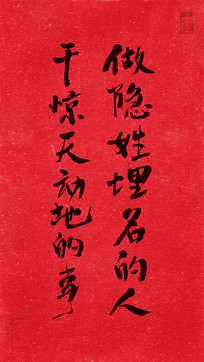 做隐姓埋名的人
干惊天动地的事